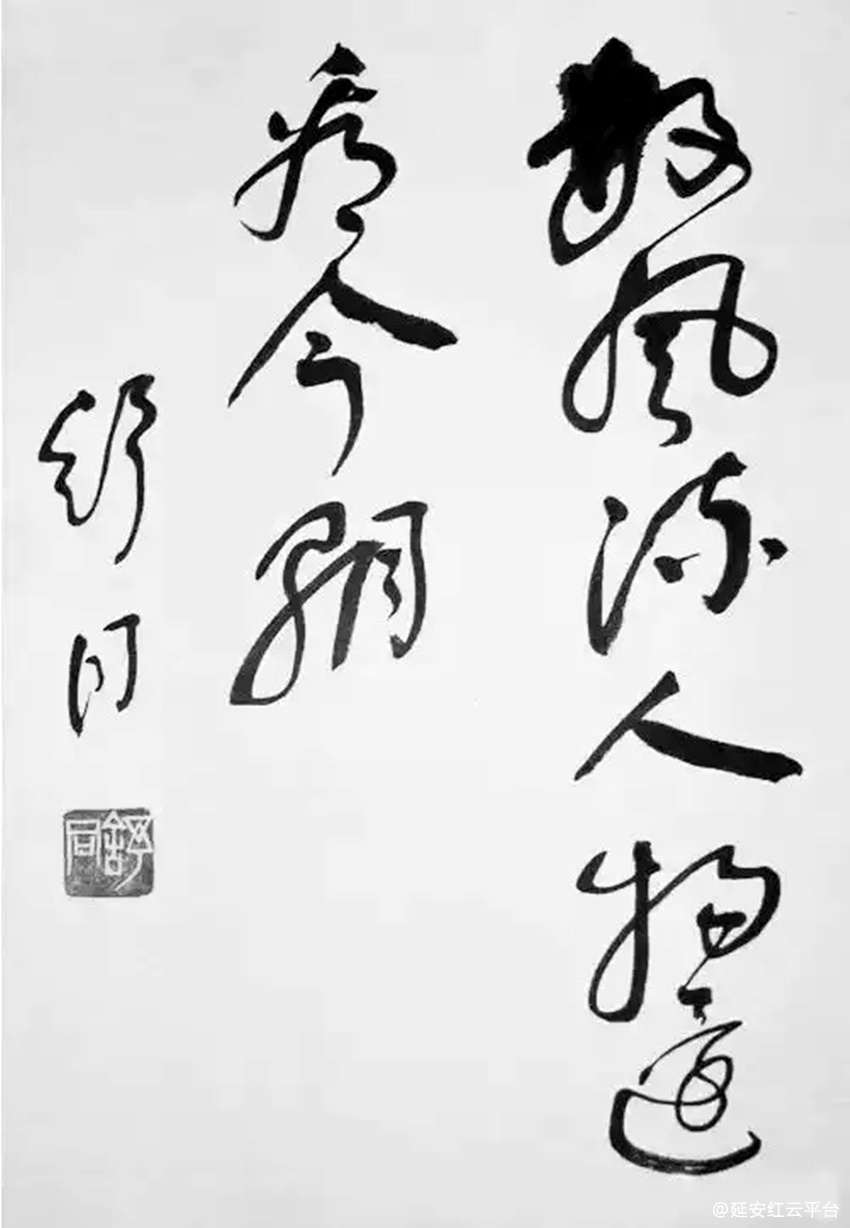 数风流人物还
看今朝
舒同
舒同
@延安红云平台